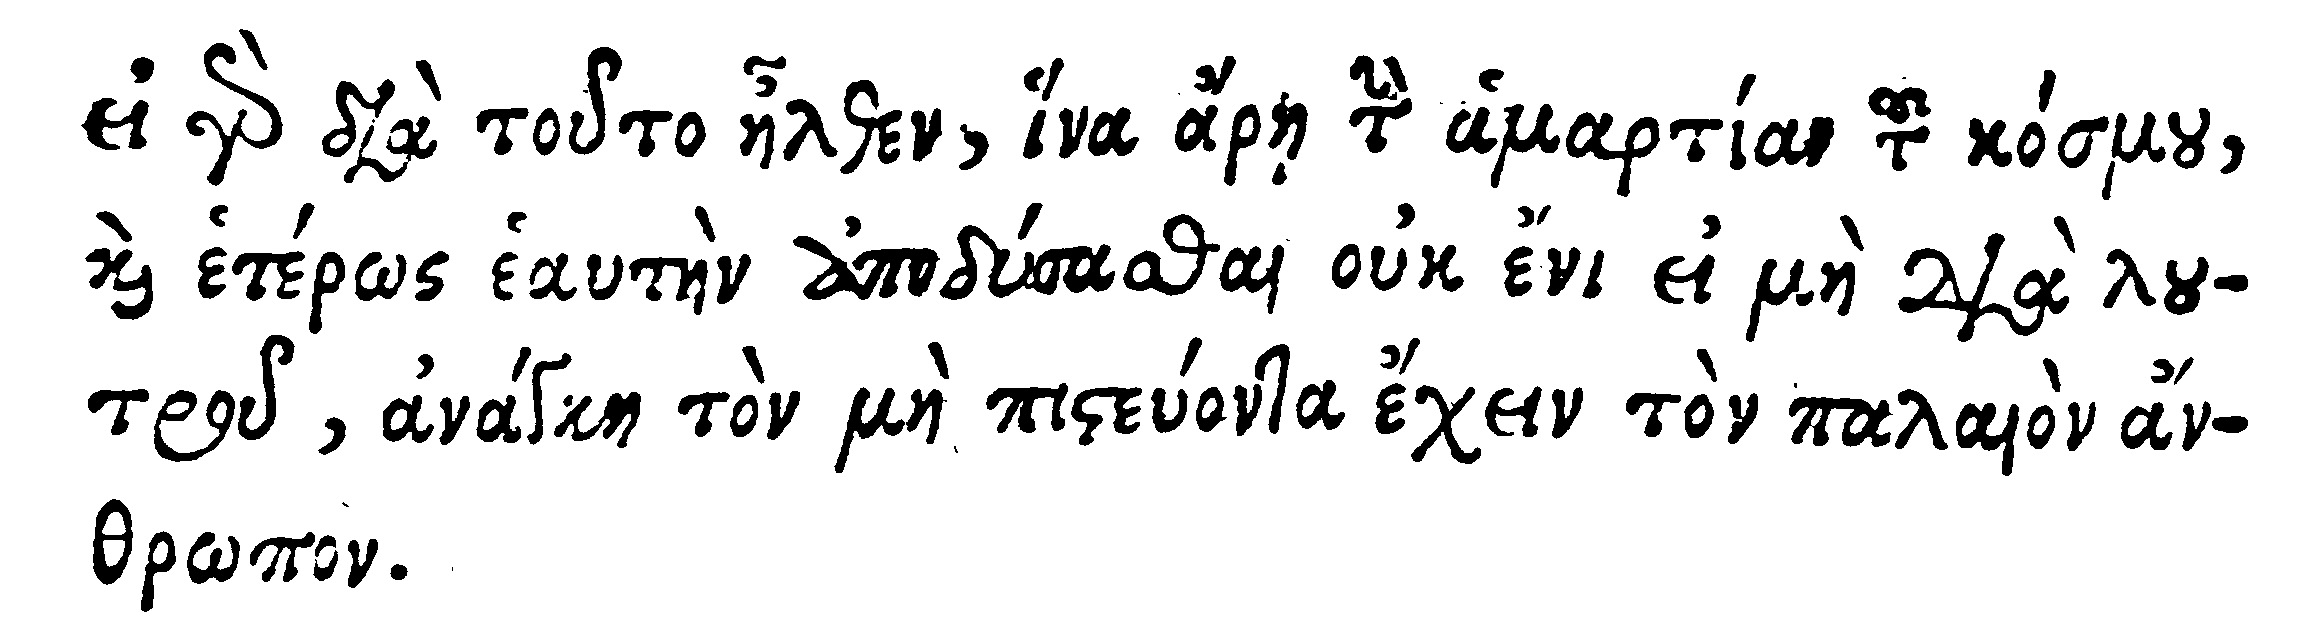 εἰ γὸ διὰ τοῦτο ἦλθεν, ἵνα ἄρῃ τὴν ἁμαρτίαν τοῦ κόσμου,
καὶ ἑτέρως ἑαυτὴν ἀποδύσασθαι οὐκ ἔνι εἰ μὴ διὰ λου-
τροῦ, ἀνάγκη τὸν μὴ πιστεύοντα ἔχειν τὸν παλαιὸν ἄν-
θρωπον.